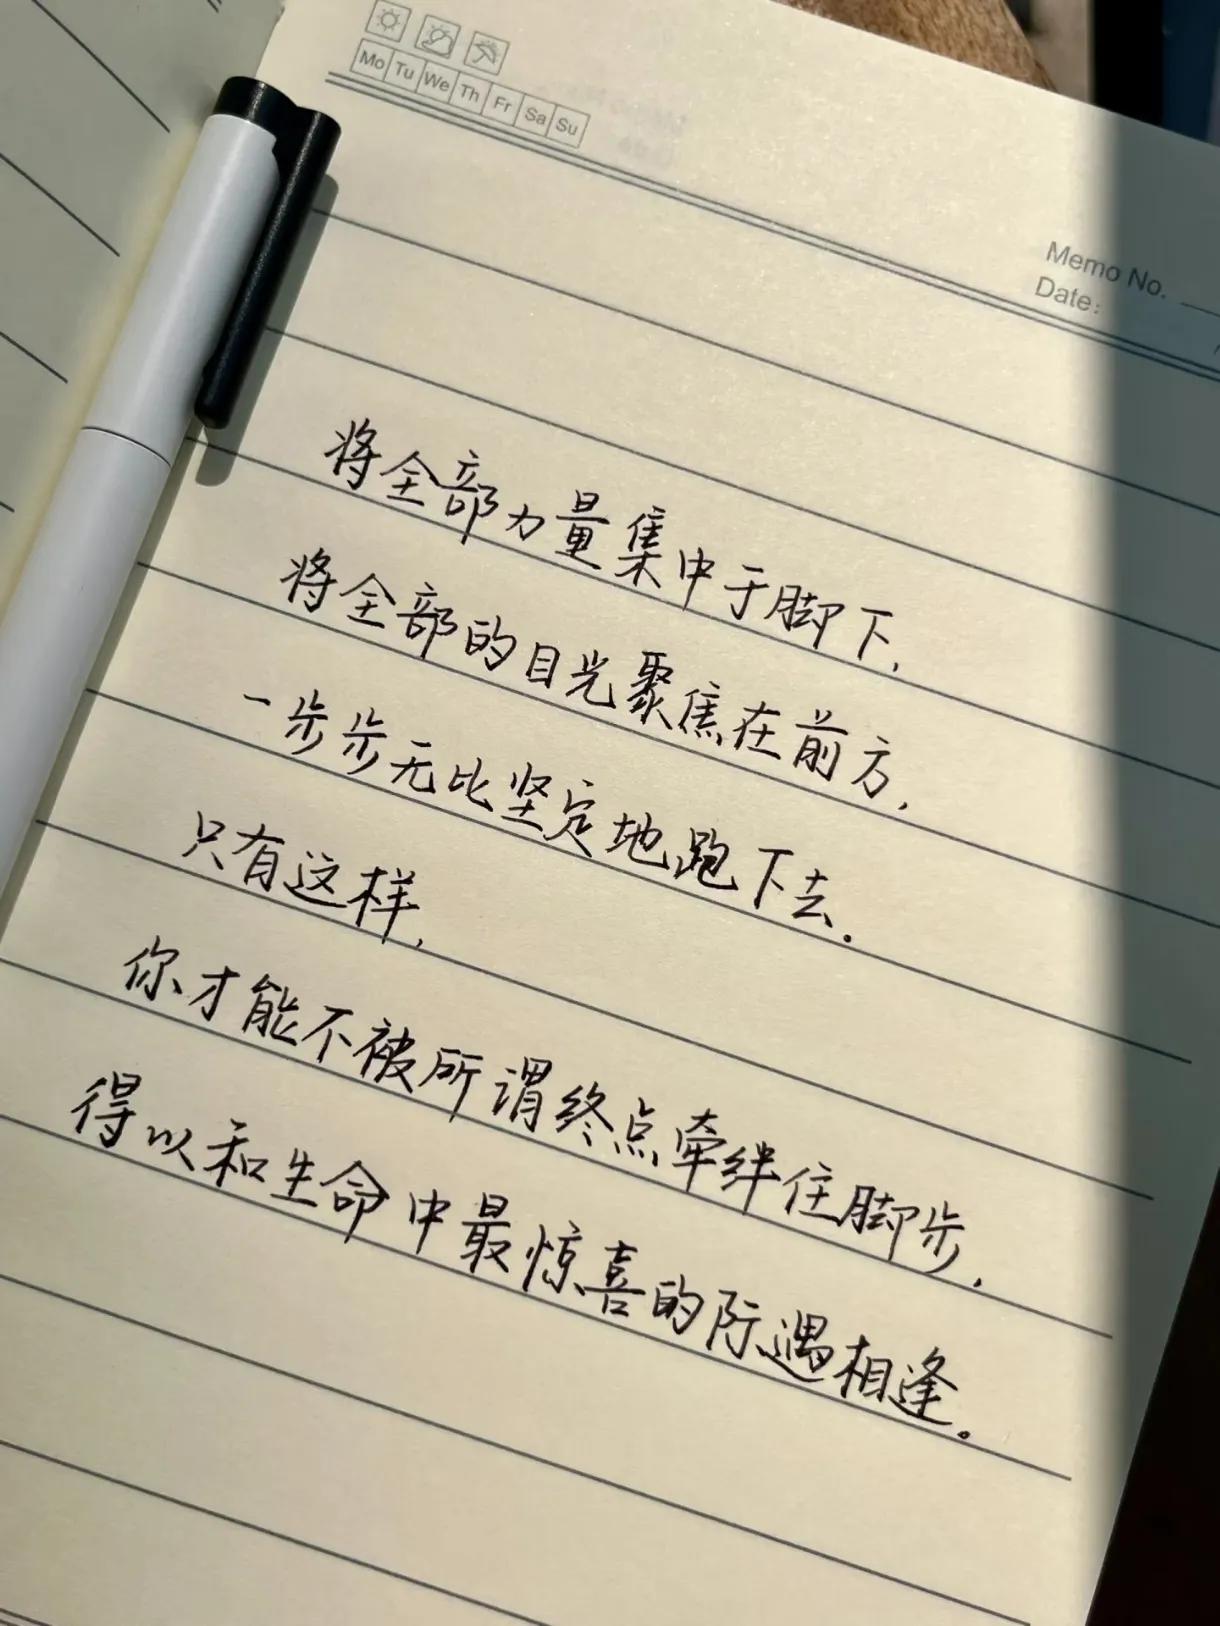 Mo Tu We Th Fr Sa Su
Memo No.
Date:
将全部力量集中于脚下,
将全部的目光聚焦在前方,
一步步无比坚定地跑下去.
只有这样,
你才能不被所谓终点牵绊住脚步,
得以和生命中最惊喜的际遇相逢。